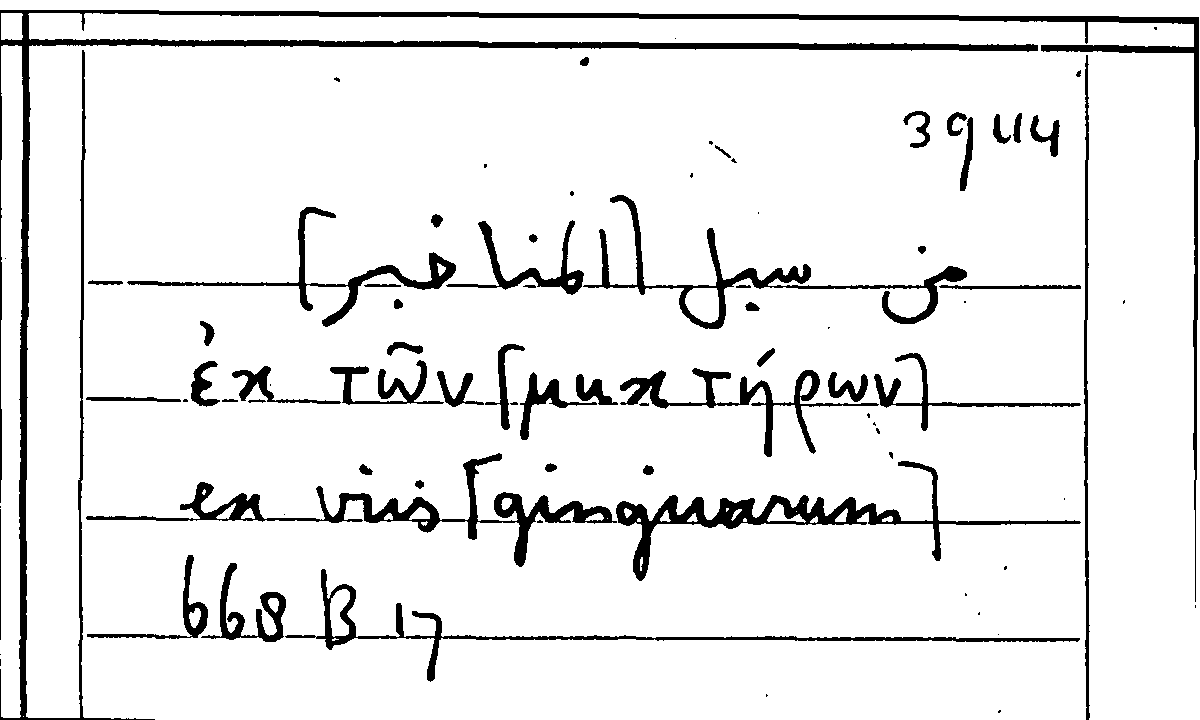 3944
من سبل [المناخير]
ἐκ τῶν [μυκτήρων]
ex viis [ginguarum]
668 B 17